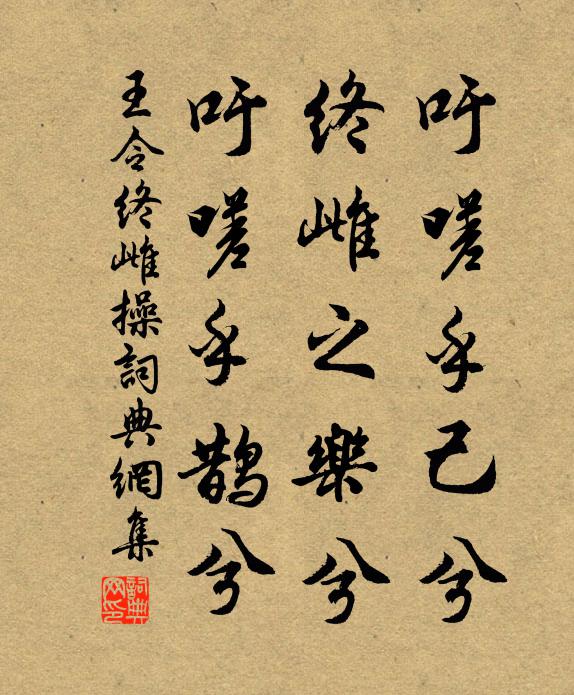 吁嗟乎己兮
終雌之樂兮
吁嗟乎鵲兮
王令終雌操詞典網集
詞典网印